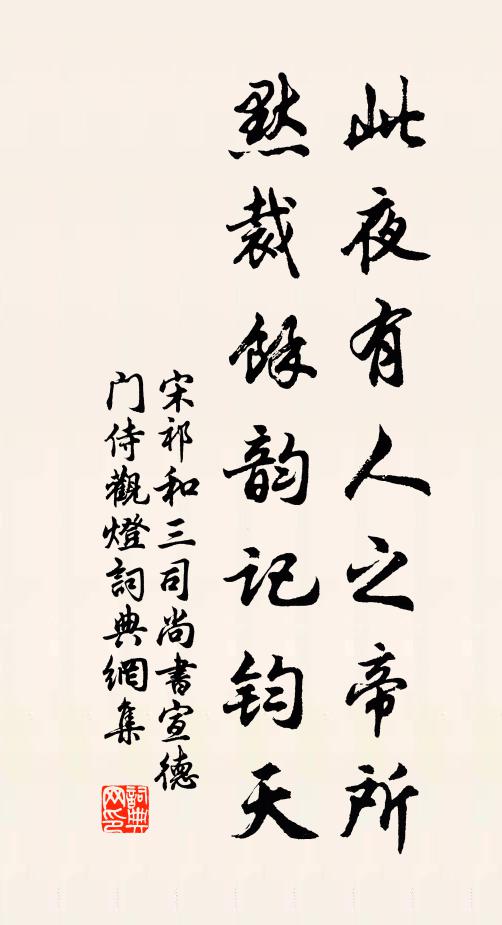 此夜有人之帝所
默裁餘韵记钧天
宋祁和三司尚書宣德
门侍觀燈詞典網集
詞典网印